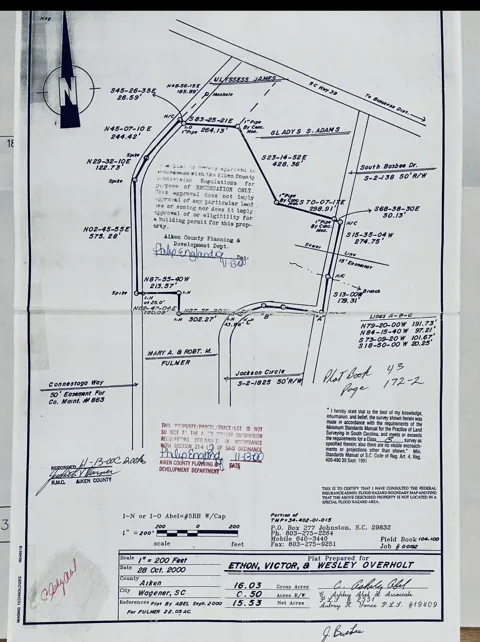 N
ULYSSESS JAMES
S45-26-35E
26.59'
N48-56-15E
Manhole
SC Hwy.39
To Business Dist.
N/C
S83-25-21E
264.13'
1"Pipe
By Conc.
Mon.
GLADYS S. ADAMS
N45-07-10 E
244.42'
N29-32-10E
122.73'
Spike
S23-14-52E
428.36'
South Busbee Dr.
S-2-138 50' R/W
purpose of RECORDATION ONLY.
This approval does not imply
approval of any particular land
use or zoning nor does it imply
approval of or eligibility for
a building permit for this prop-
erty.
Aiken County Planning &
Development Dept.
11-13-00
1"Pipe
By Conc.
Mon.
S70-07-17E
298.91'
S68-38-30E
30.13'
N02-45-55E
575.28'
S15-35-04W
274.75'
Sewer
Line
15' Easement
N/C
Branch
Spike
N87-53-40W
213.57'
I-N
S13-00W
179.31'
302.27'
"C"
"B"
"A"
Lines A-B-C
N79-20-00W 191.73'
N84-15-40W 97.21'
S73-09-20W 101.67'
S18-50-00W 20.25'
MARY A. & ROBT. M.
FULMER
Jackson Circle
S-2-1825 50' R/W
Plat Book 43
Page 172-2
Connestoga Way
50' Easement For
Co. Maint. #863
THIS PROPERTY/PARCEL/TRACT/LOT IS NOT
SUBJECT TO THE AIKEN COUNTY SUBDIVISION
REGULATIONS
AIKEN COUNTY PLANNING &
DEVELOPMENT DEPARTMENT
DATE
11-13-00
"I hereby state that to the best of my knowledge,
information, and belief, the survey shown herein was
made in accordance with the requirements of the
Minimum Standards Manual for the Practice of Land
Surveying in South Carolina, and meets or exceeds
the requirements for a Class B survey as
specified therein; also there are no visible encroach-
ments or projections other than shown." Min.
Standards Manual of S.C. Code of Reg. Art. 4, Reg.
400-490 30 Sept. 1991
RECORDED 11-13-00
R.M.C. AIKEN COUNTY
THIS IS TO CERTIFY THAT I HAVE CONSULTED THE FEDERAL
INSURANCE ADMIN. FLOOD HAZARD BOUNDARY MAP AND FIND
THAT THE ABOVE DESCRIBED PROPERTY IS NOT LOCATED IN A
SPECIAL FLOOD HAZARD AREA.
I-N or I-O Abel=#5RB W/Cap
200 0 200
1"= 200'
scale feet
Portion of
TMP#34.402-01-015
P.O. Box 277 Johnston, S.C. 29832
Ph. 803-275-2264
Mobile 640-3440
Fax: 803-275-9251
Field Book 104-100
Job # 0082
Scale 1" = 200 Feet
Date 28 Oct. 2000
County Aiken
City Wagener, SC
References Plat By ABEL Sept. 2000
For FULMER 22.05AC.
Plat Prepared for
ETHON, VICTOR, & WESLEY OVERHOLT
16.03 Gross Acres
0.50 Acres R/W
15.53 Net Acres
C. Ashley Abel & Associate
P.L.S. 2331
#19409
J. Busbee